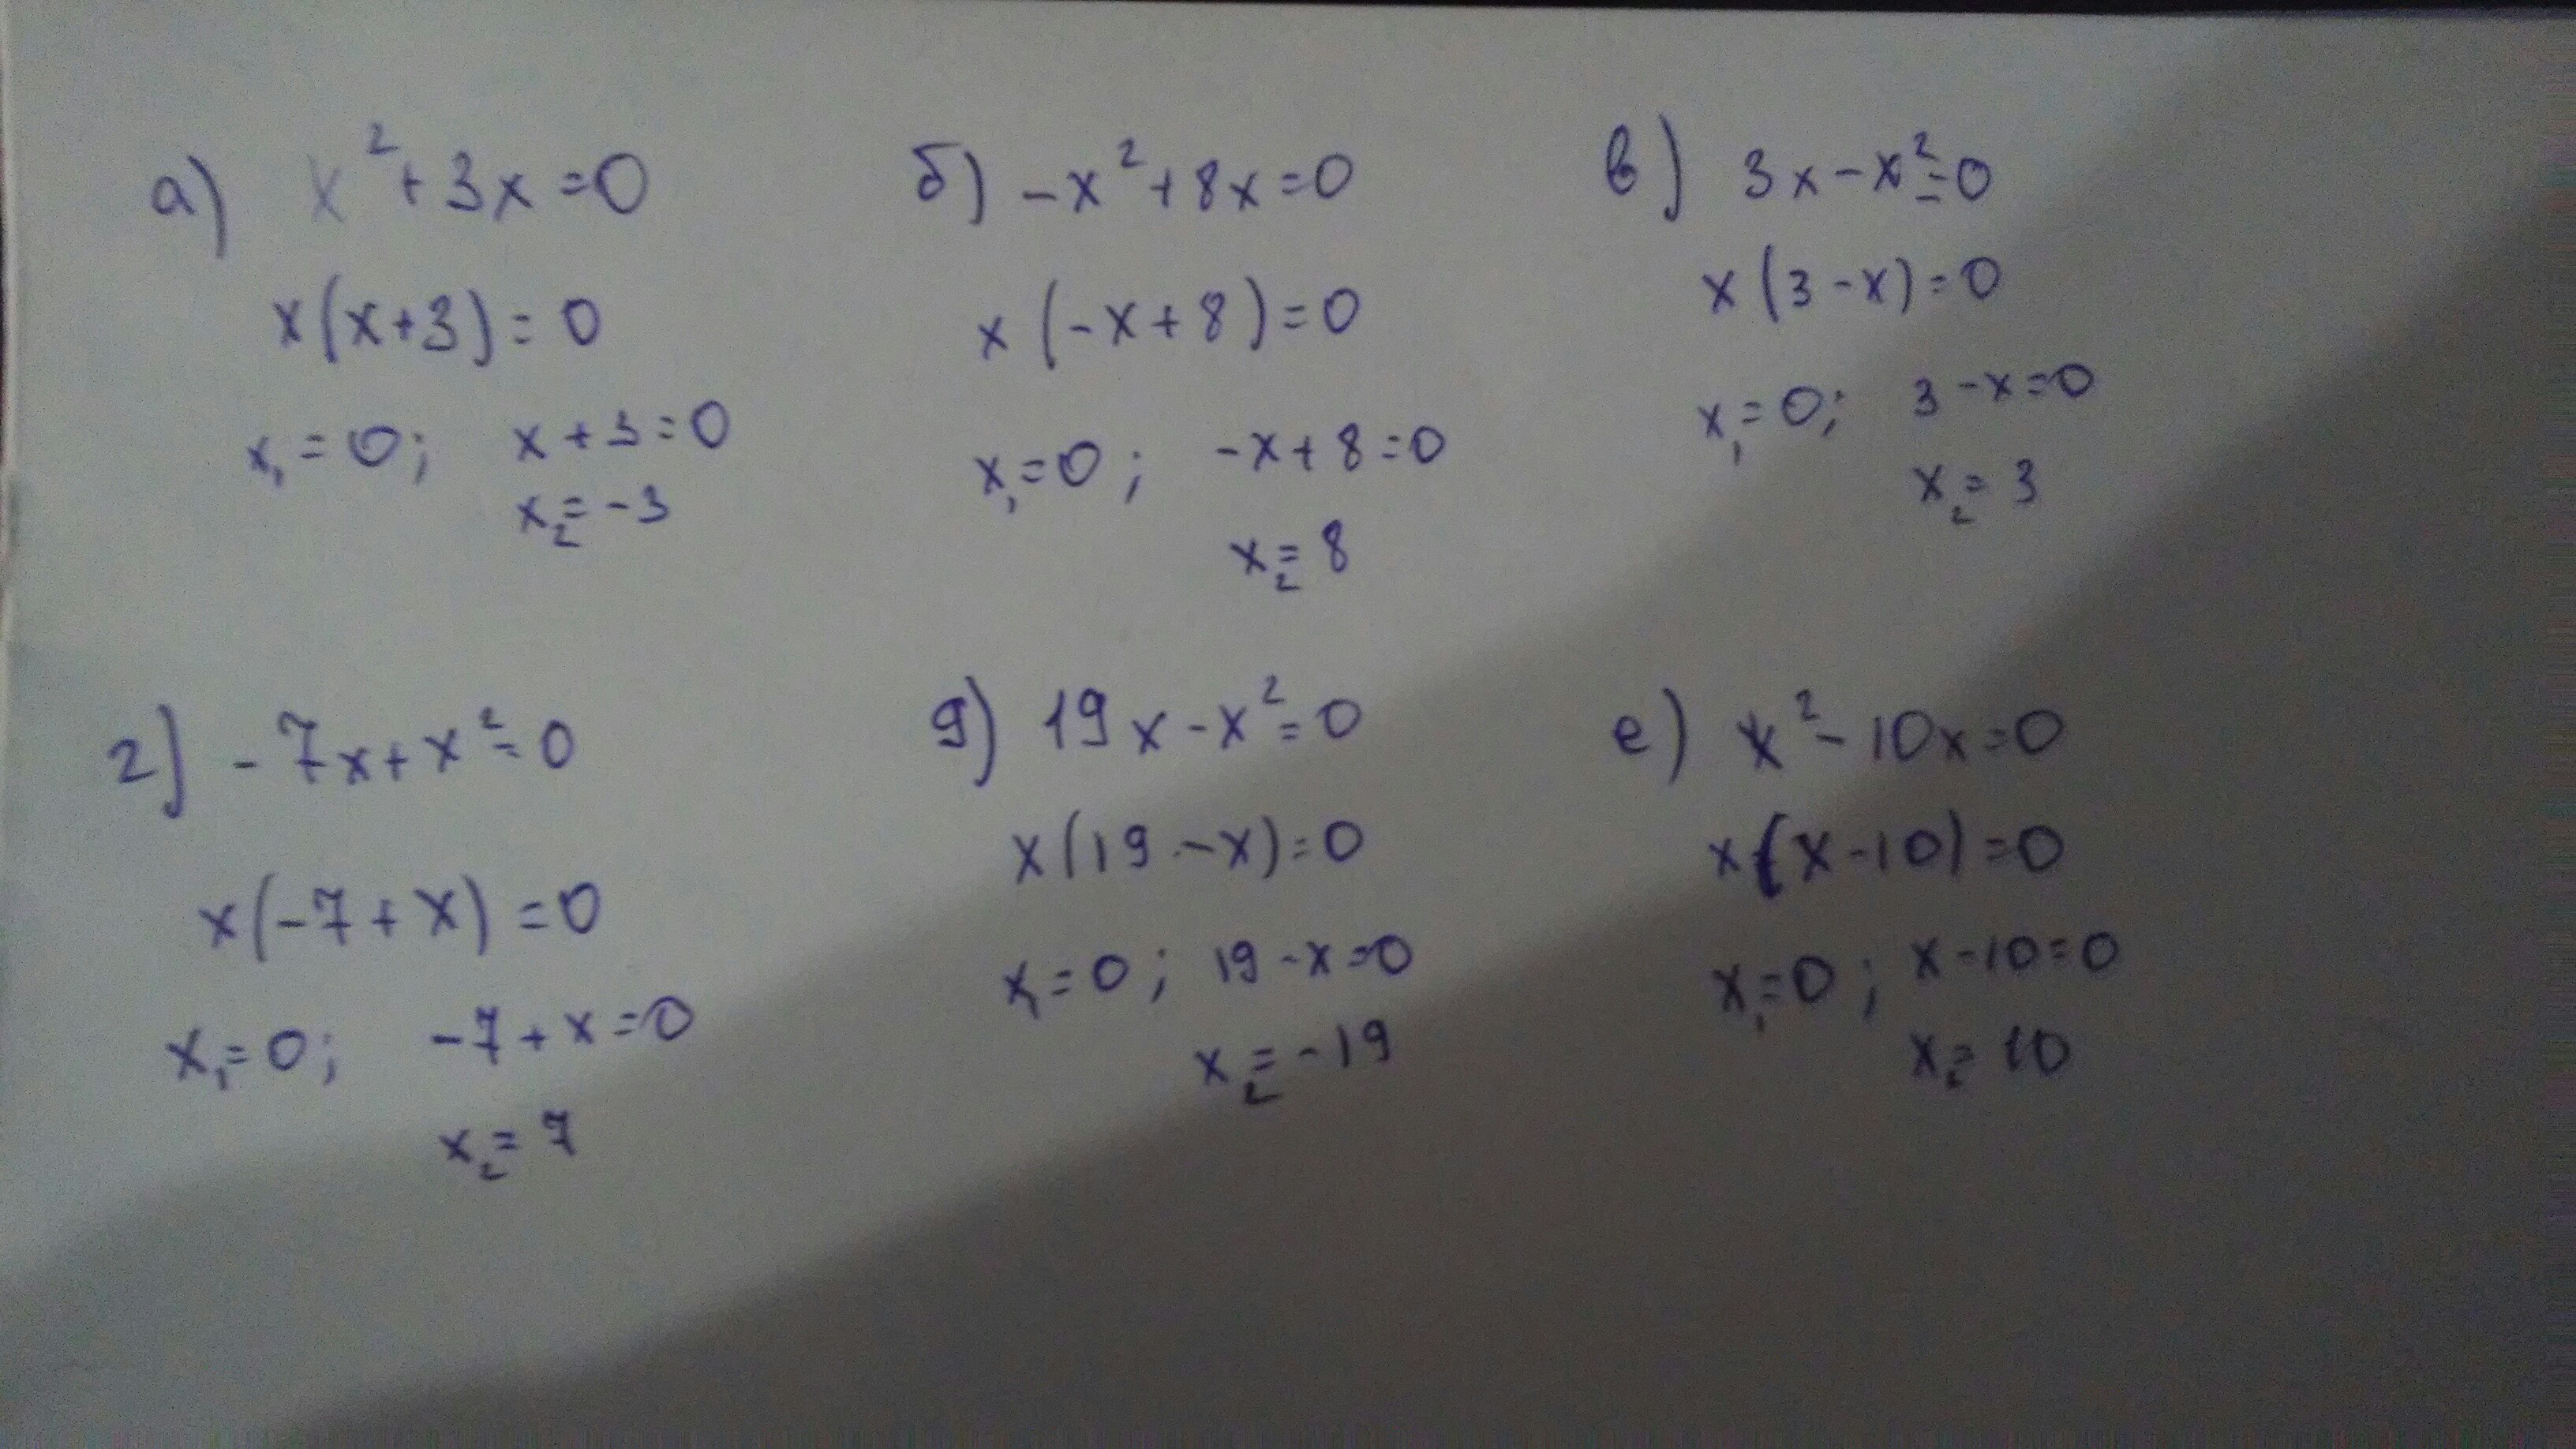 а) x²+3x=0
x(x+3)=0
x₁=0; x+3=0
x₂=-3
б) -x²+8x=0
x(-x+8)=0
x₁=0; -x+8=0
x₂=8
в) 3x-x²=0
x(3-x)=0
x₁=0; 3-x=0
x₂=3
г) -7x+x²=0
x(-7+x)=0
x₁=0; -7+x=0
x₂=7
д) 19x-x²=0
x(19-x)=0
x₁=0; 19-x=0
x₂=-19
е) x²-10x=0
x(x-10)=0
x₁=0; x-10=0
x₂=10